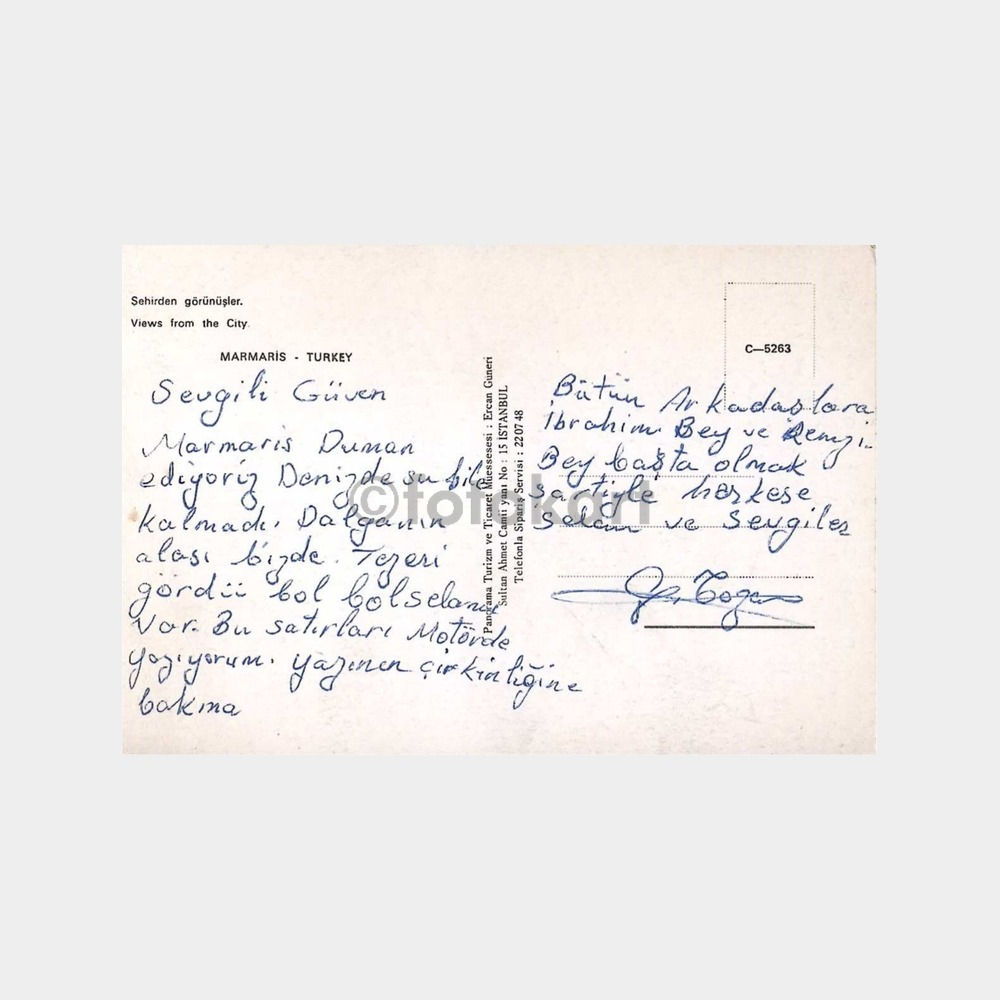 Şehirden görünüşler.
Views from the City.
MARMARİS - TURKEY
Sevgili Güven
Marmaris Duman
ediyoriz Denizde su bile
kalmadı. Dalganın
alası bizde. Tezeri
gördü bol bol selamı
var. Bu satırları Motörde
yazıyorum. yazının çirkinliğine
bakma
Panorama Turizm ve Ticaret Müessesesi : Ercan Güneri
Sultan Ahmet Camii yanı No : 15 İSTANBUL
Telefonla Sipariş Servisi : 22 07 48
C—5263
Bütün Arkadaşlara
İbrahim Bey ve Remzi
Bey başta olmak
şartiyle herkese
Selam ve Sevgiler
©fotokart